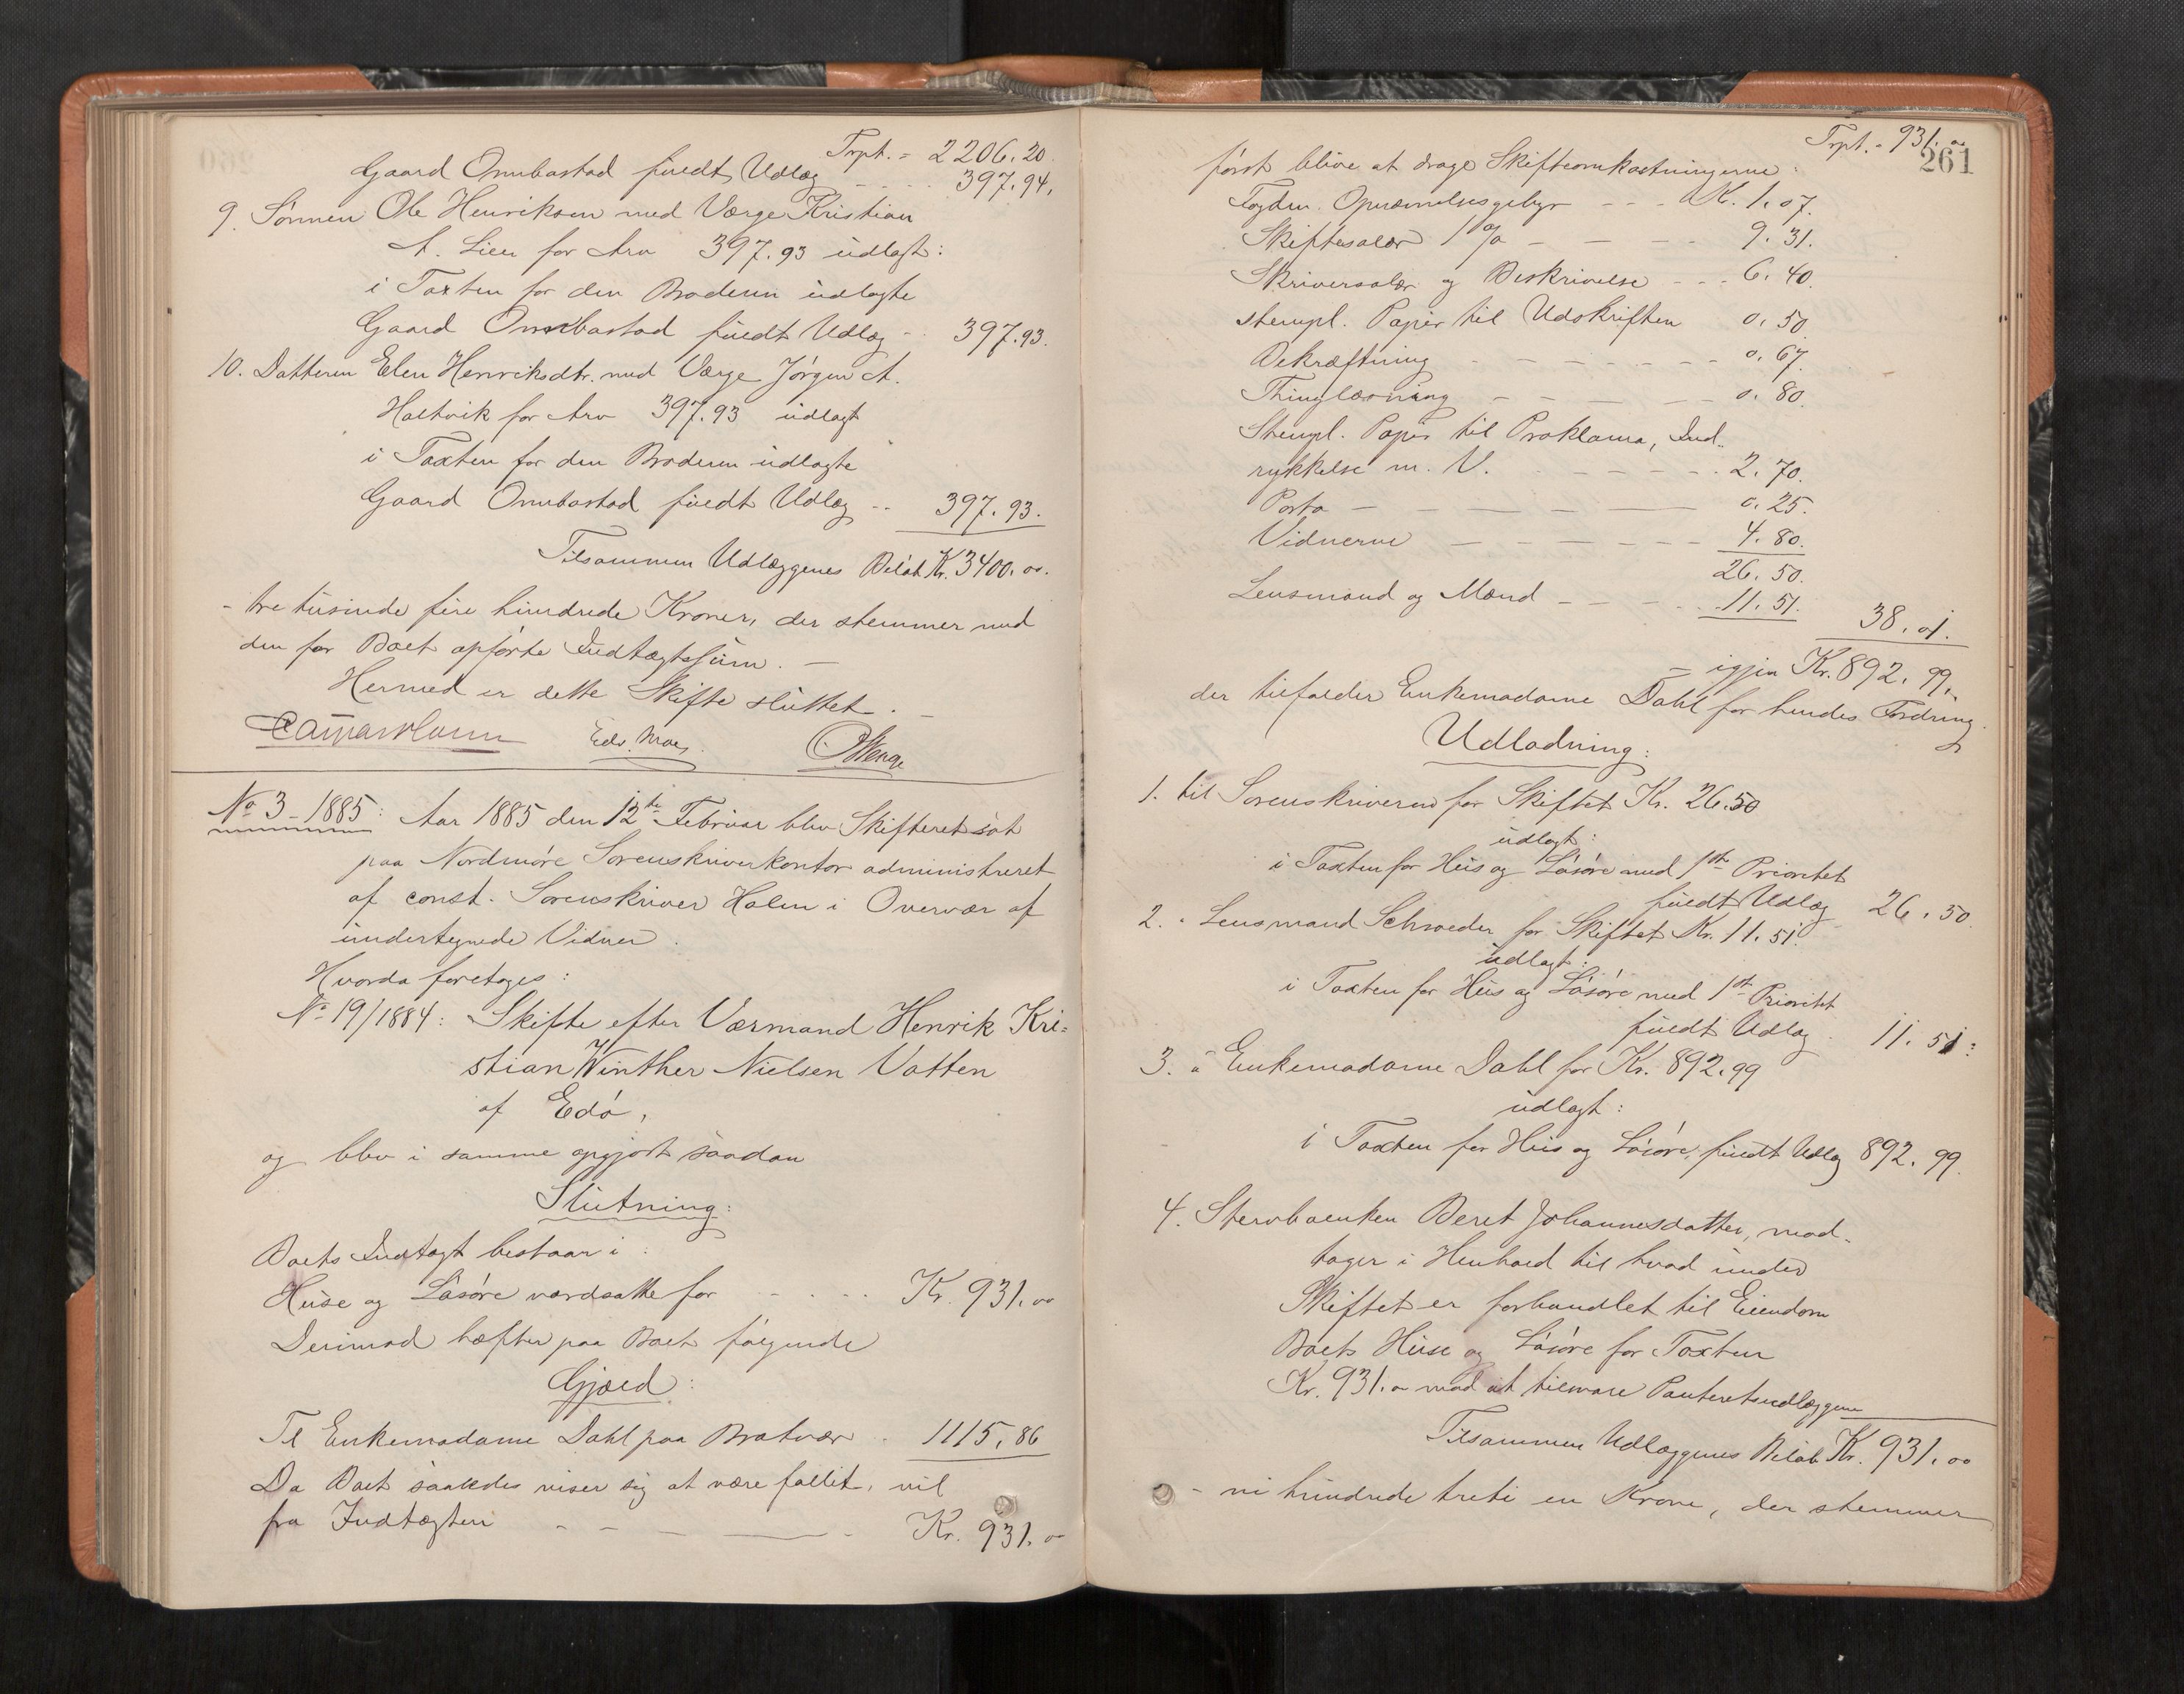 Trpt. = 2206.20
Gaard Ombastad fuldt Udlæg - - - - 397.94.
9. Sønnen Ole Henriksen med Værge Kristian
A. Lien for Arv 397.93 udlagt:
i Taxten for den Broderen udlagte
Gaard Ombastad fuldt Udlæg - 397.93.
10. Datteren Elen Henriksdtr. med Værge Jørgen A.
Holtvik for Arv 397.93 udlagt
i Taxten for den Broderen udlagte
Gaard Ombastad fuldt Udlæg - - 397.93.
Tilsammen Udlæggenes Beløb Kr. 3400.00.
- tre tusinde fire hundrede Kroner, der stemmer med
den for Boet opførte Indtægtssum. -
Hermed er dette Skifte sluttet. -
Edv. Moe.
No 3 - 1885: Aar 1885 den 12te Februar blev Skifteret sat
paa Nordmøre Sorenskriverkontor administreret
af const. Sorenskriver Holm i Overvær af
undertegnede Vidner.
Hvorda foretoges:
No 19/1884: Skifte efter Værmand Henrik Kri=
stian Winther Nielsen Vatten
af Edø,
og blev i samme opgjort saadan
Slutning:
Boets Indtægt bestaar i:
Huse og Løsøre værdsatte for - - - - Kr. 931.00
Derimod hæfter paa Boet følgende
Gjæld:
Til Enkemadame Dahl paa Bratvær - 1115.86
Da Boet saaledes viser sig at være fallit, vil
fra Indtægten - - - - - Kr. 931.00
Trpt. = 931.00
261
først blive at drage Skifteomkostningerne:
Fogden Opnævnelsesgebyr - - - Kr. 1.07.
Skiftesalær 1 % - - - - 9.31.
Skriversalær og Beskrivelse - - - 6.40.
stempl. Papir til Udskriften 0.50
Bekræftning - - - - - - - 0.67.
Thinglæsning - - - - - - 0.80.
Stempl. Papir til Proklama, Ind-
rykkelse m. V. - - - - - 2.70.
Porto - - - - - - 0.25.
Vidnerne - - - - - - 4.80.
26.50.
Lensmand og Mænd - - - - - 11.51. 38.01.
- igjen Kr. 892.99,
der tilfalder Enkemadame Dahl for hendes Fordring.
Udlodning:
1. til Sorenskriveren for Skiftet Kr. 26.50
udlagt:
i Taxten for Hus og Løsøre med 1ste Prioritet
fuldt Udlæg 26.50.
2. " Lensmand Schrøder for Skiftet Kr. 11.51.
udlagt:
i Taxten for Hus og Løsøre med 1ste Prioritet
fuldt Udlæg . 11.51:
3. " Enkemadame Dahl for Kr. 892.99
udlagt:
i Taxten for Hus og Løsøre, fuldt Udlæg 892.99.
4. Stervboenken Beret Johannesdatter, mod-
tager i Henhold til hvad under
Skiftet er forhandlet til Eiendom
Boets Huse og Løsøre for Taxten
Kr. 931.00 mod at tilsvare Panteretsudlæggene
Tilsammen Udlæggenes Beløb Kr. 931.00
- ni hundrede treti en Krone, der stemmer